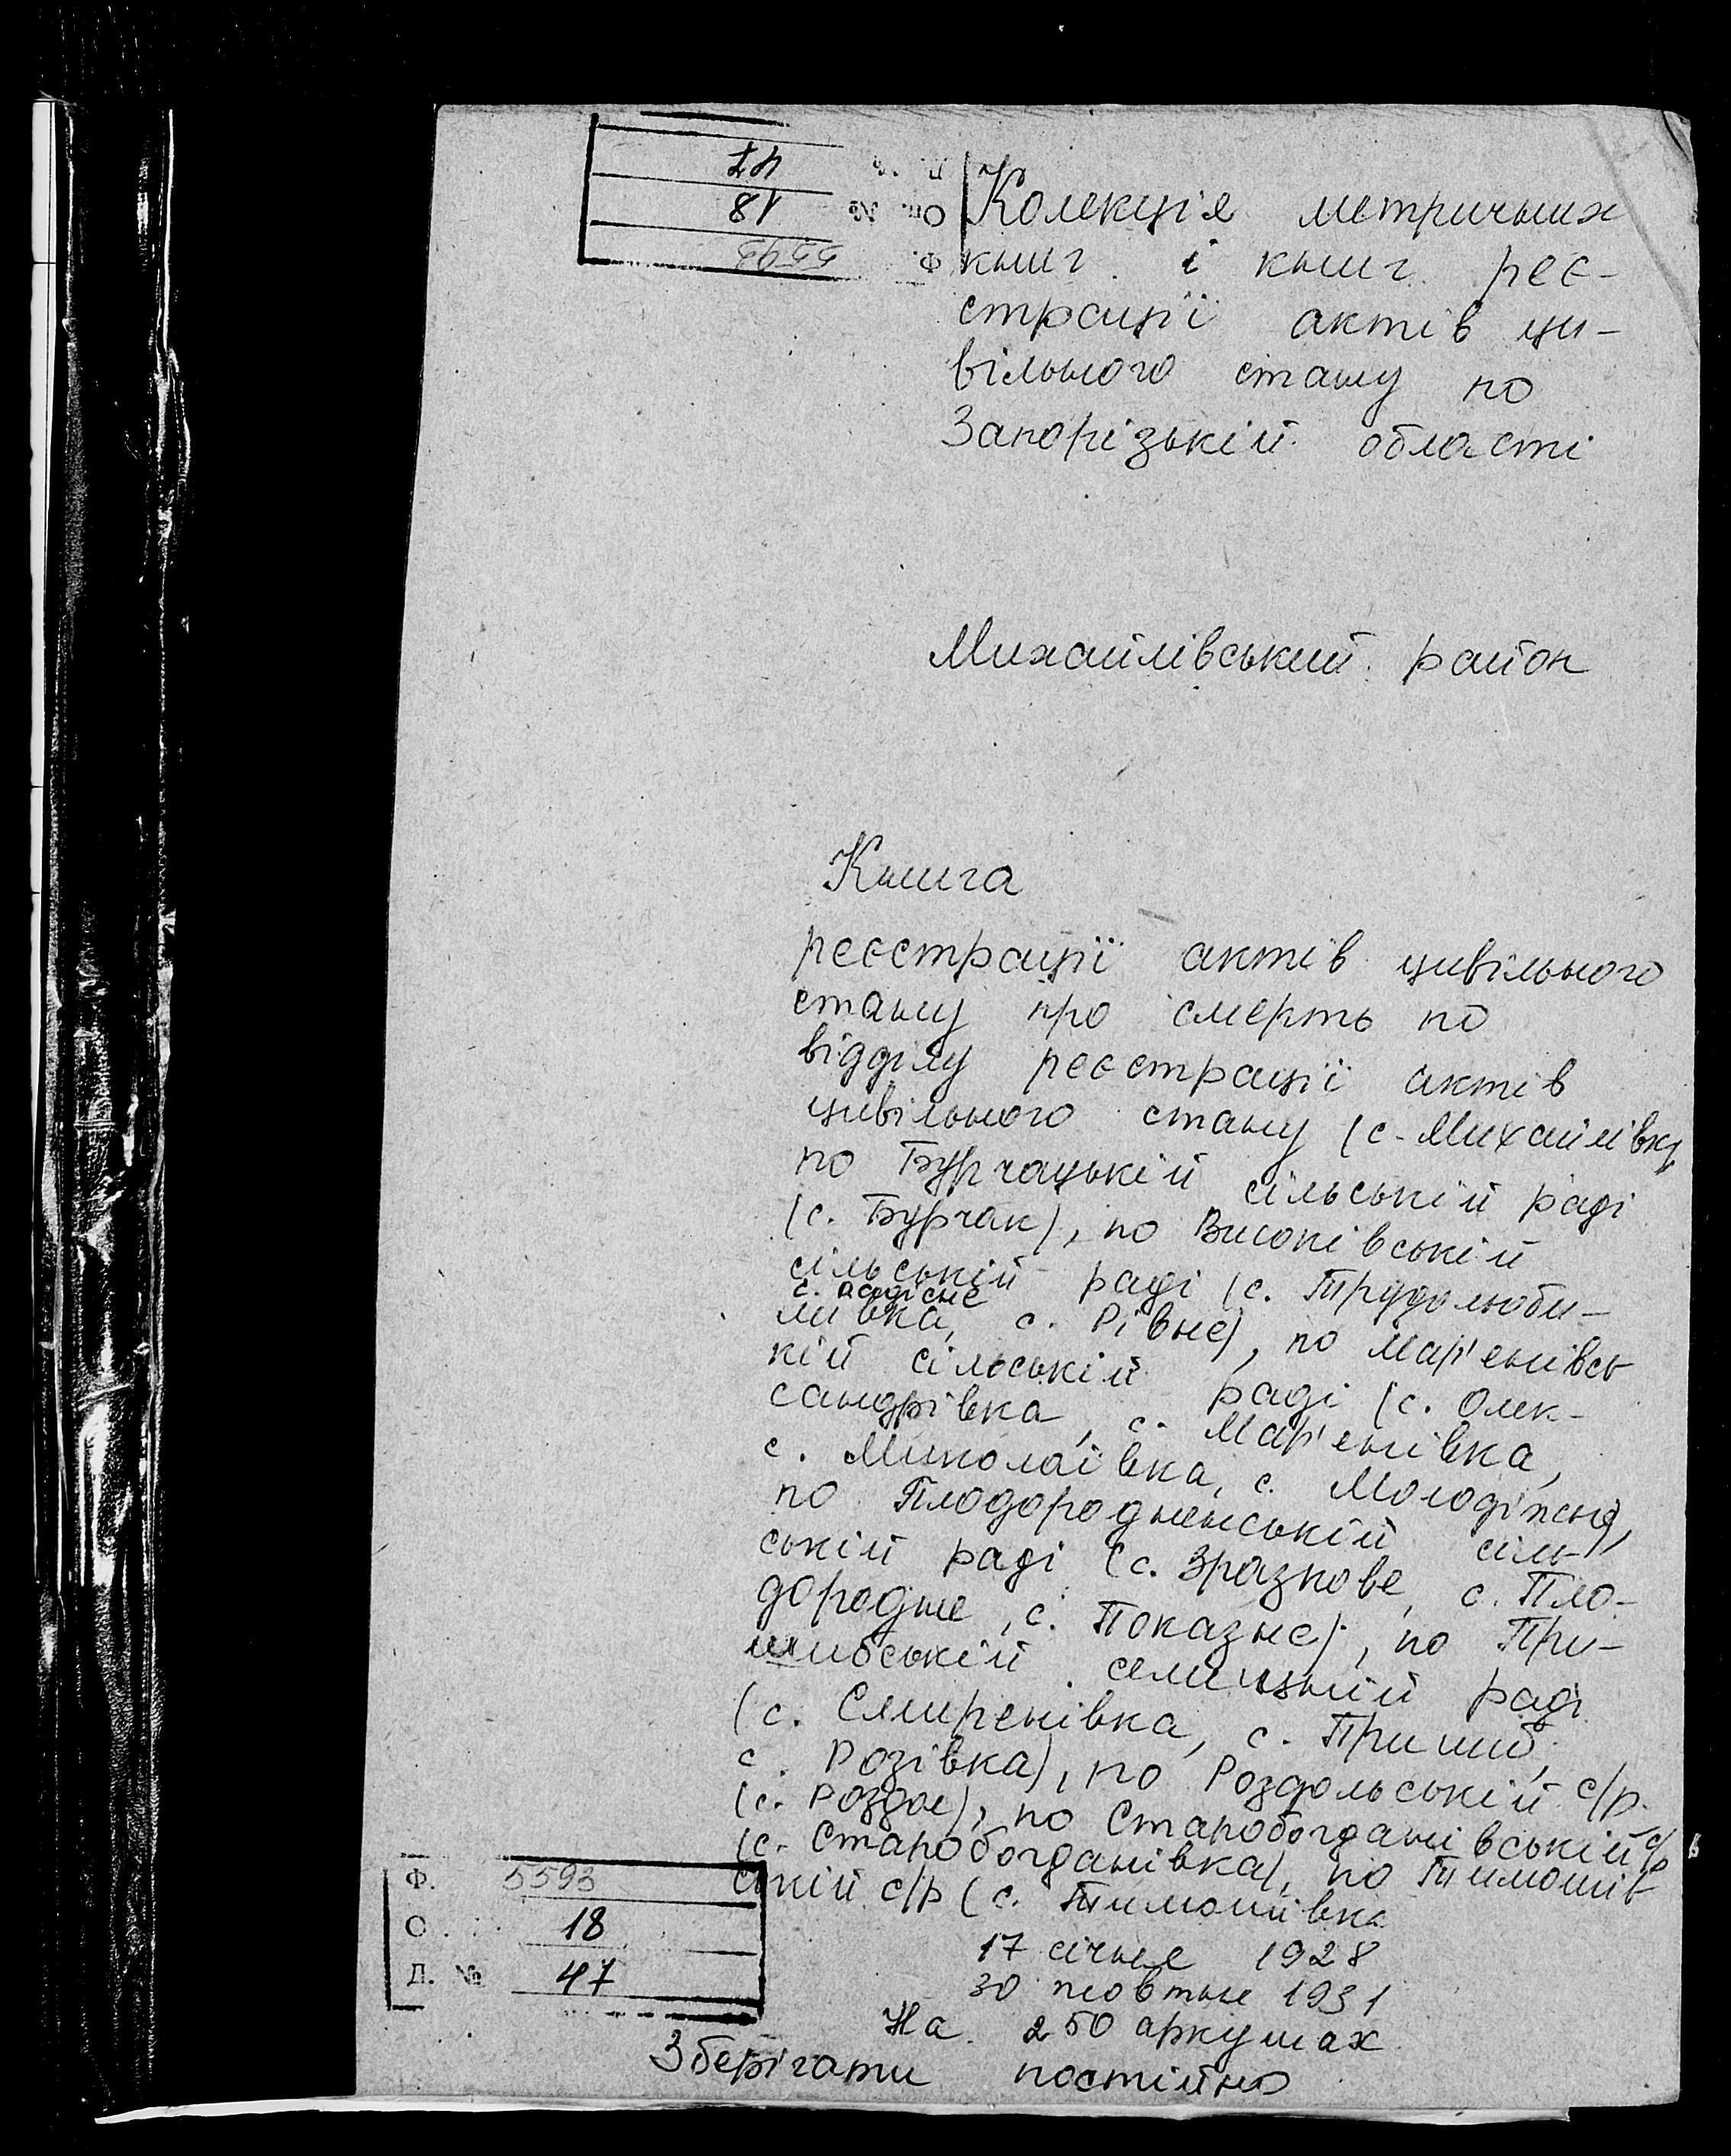 Д. № 47
Оп. № 18
Ф. 5593
Колекція метричних
книг і книг реє-
страції актів ци-
вільного стану по
Запорізькій області
Михайлівський район
Книга
реєстрації актів цивільного
стану про смерть по
відділу реєстрації актів
цивільного стану (с. Михайлівка)
по Бурчацькій сільській раді
(с. Бурчак), по Високівській
сільській раді (с. Трудолюби-
с. Радісне
мівка, с. Рівне), по Мар'янівсь
кій сільській раді (с. Олек-
сандрівка, с. Мар'янівка,
с. Миколаївка, с. Молодіжне),
по Плодородненській сіль-
ській раді (с. Зразкове, с. Пло-
дородне, с. Показне), по При-
шибській селищній раді
(с. Смиренівка, с. Пришиб,
с. Розівка), по Роздольській с/р.
(с. Роздол), по Старобогданівській с/р
(с. Старобогданівка), по Тимошів
ській с/р (с. Тимошівка
17 січня 1928
30 жовтня 1931
На 250 аркушах
Зберігати постійно
Ф. 5593
О. 18
Д. № 47